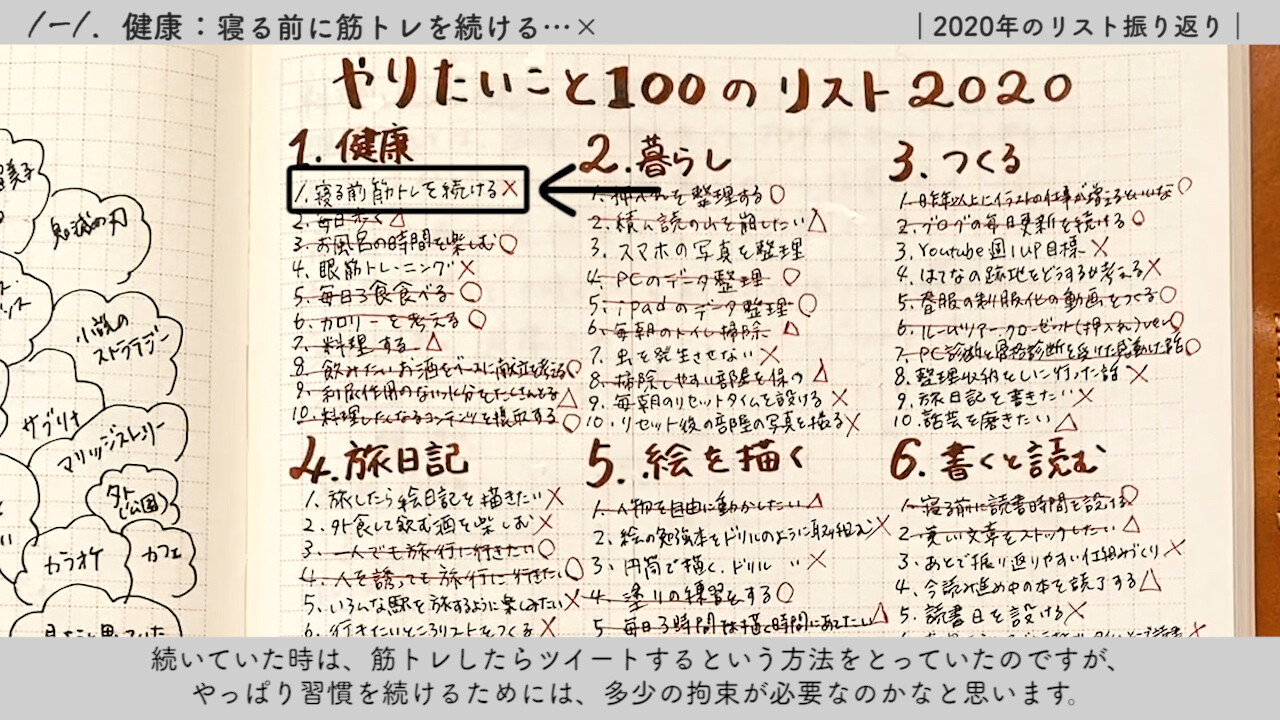 1-1. 健康：寝る前に筋トレを続ける…×
｜2020年のリスト振り返り｜
鬼滅の刃
小説の
ストラテジー
サブリナ
マリッジストーリー
外
(公園)
カラオケ
カフェ
やりたいこと100のリスト2020
1. 健康
1. 寝る前筋トレを続ける ×
2. 毎日歩く △
3. お風呂の時間を楽しむ ○
4. 眼筋トレーニング ×
5. 毎日3食食べる ○
6. カロリーを考える ○
7. 料理する △
8. 飲みたいお酒をベースに献立を考える ○
9. 利尿作用のない水分をたくさんとる △
10. 料理したくなるコンテンツを摂取する ○
2. 暮らし
1. 押入れを整理する ○
2. 積ん読の山を崩したい △
3. スマホの写真を整理
4. PCのデータ整理 ○
5. ipadのデータ整理 ○
6. 毎朝のトイレ掃除 △
7. 虫を発生させない ×
8. 掃除しやすい部屋を保つ △
9. 毎朝のリセットタイムを設ける ×
10. リセット後の部屋の写真を撮る ×
3. つくる
1. 昨年以上にイラストの仕事が増えるといいな ○
2. ブログの毎日更新を続ける ○
3. Youtube週1UP目標 ×
4. はてなの跡地をどうするか考える ×
5. 春服の制服化の動画をつくる ○
6. ルームツアー クローゼット(押入れ)ver ○
7. PC診断と骨格診断を受けた感動した話 ○
8. 整理収納をしに行った話 ×
9. 旅日記を書きたい ×
10. 話芸を磨きたい △
4. 旅日記
1. 旅したら絵日記を描きたい ×
2. 外食して飲む酒を楽しむ ×
3. 一人でも旅行に行きたい ○
4. 人を誘っても旅行に行きたい ○
5. いろんな駅を旅するように楽しみたい ×
6. 行きたいところリストをつくる ×
5. 絵を描く
1. 人物を自由に動かしたい △
2. 絵の勉強本をドリルのように取り組む ×
3. 円筒で描く.ドリル 〃 ×
4. 塗りの練習をする ○
5. 毎日3時間は描く時間にあてたい △
6. 書くと読む
1. 寝る前に読書時間を設ける ○
2. 美しい文章をストックしたい △
3. あとで振り返りやすい仕組みづくり ×
4. 今読み進め中の本を読了する △
5. 読書日を設ける ×
続いていた時は、筋トレしたらツイートするという方法をとっていたのですが、
やっぱり習慣を続けるためには、多少の拘束が必要なのかなと思います。